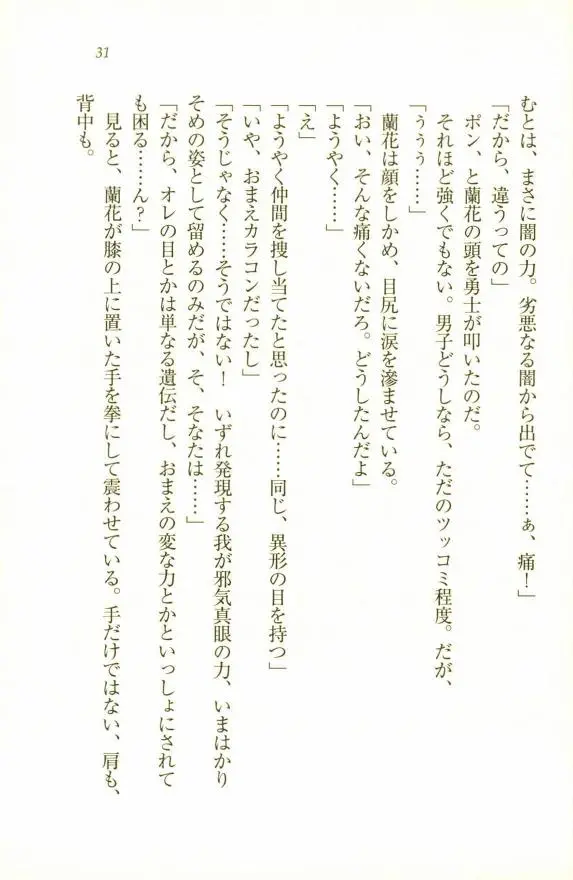 31
むとは、まさに闇の力。劣悪なる闇から出でて……ぁ、痛！」
「だから、違うっての」
　ポン、と蘭花の頭を勇士が叩いたのだ。
　それほど強くでもない。男子どうしなら、ただのツッコミ程度。だが、
「ぅぅぅ……」
　蘭花は顔をしかめ、目尻に涙を滲ませている。
「おい、そんな痛くないだろ。どうしたんだよ」
「ようやく……」
「え」
「ようやく仲間を捜し当てたと思ったのに……同じ、異形の目を持つ」
「いや、おまえカラコンだったし」
「そうじゃなく……そうではない！　いずれ発現する我が邪気真眼の力、いまはかり
そめの姿として留めるのみだが、そ、そなたは……」
「だから、オレの目とかは単なる遺伝だし、おまえの変な力とかといっしょにされて
も困る……ん？」
　見ると、蘭花が膝の上に置いた手を拳にして震わせている。手だけではない、肩も、
背中も。